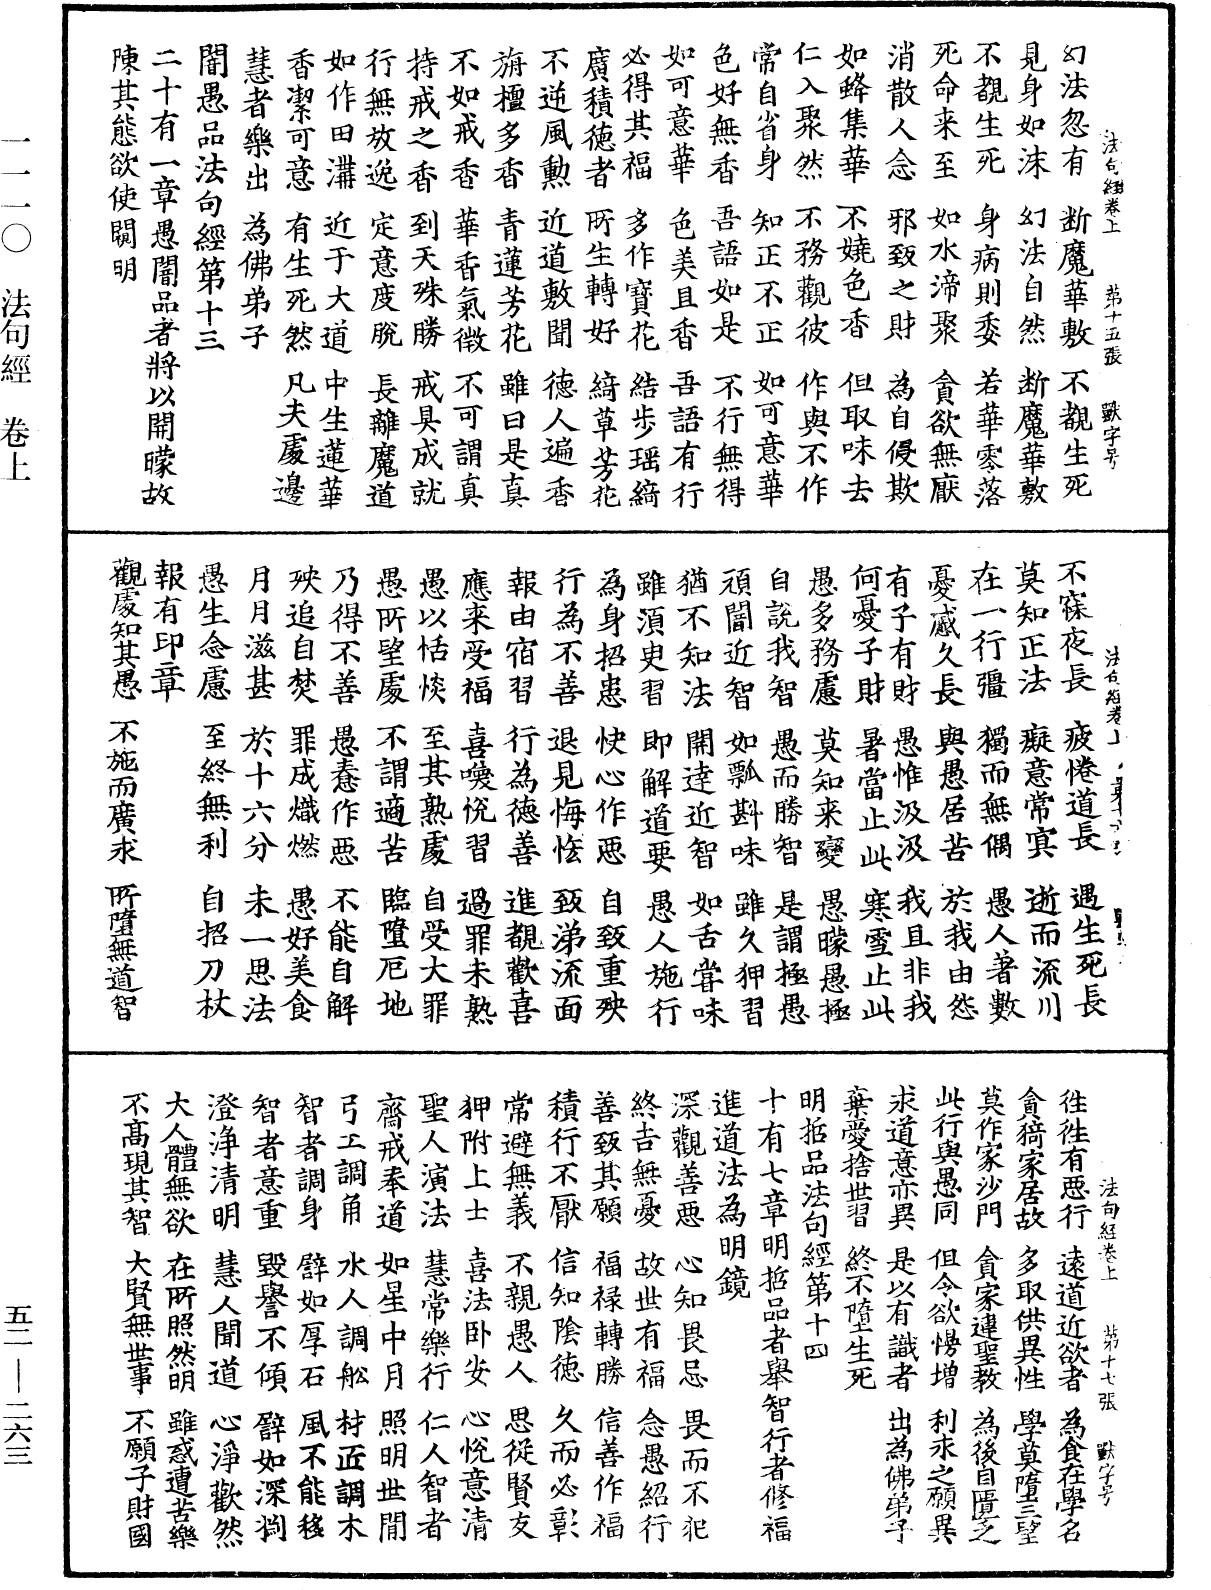 一一一〇　法句經　卷上
五二—二六三
法句經卷上　第十五張　獸字号
幻法忽有　断魔華敷　不覩生死
見身如沫　幻法自然　断魔華敷
不覩生死　身病則委　若華零落
死命来至　如水渧聚　貪欲無厭
消散人念　邪致之財　為自侵欺
如蜂集華　不嬈色香　但取味去
仁入聚然　不務觀彼　作與不作
常自省身　知正不正　如可意華
色好無香　吾語如是　不行無得
如可意華　色美且香　吾語有行
必得其福　多作寶花　結步瑶綺
廣積德者　所生轉好　綺草芳花
不逆風勲　近道敷聞　德人遍香
旃檀多香　青蓮芳花　雖曰是真
不如戒香　華香氣微　不可謂真
持戒之香　到天殊勝　戒具成就
行無放逸　定意度脫　長離魔道
如作田溝　近于大道　中生蓮華
香潔可意　有生死然　凡夫處邊
慧者樂出　為佛弟子
闇愚品法句經第十三
二十有一章愚闇品者將以開曚故
陳其態欲使闚明
法句經卷上
不寐夜長　疲惓道長　遇生死長
莫知正法　癡意常冥　逝而流川
在一行彊　獨而無偶　愚人著數
憂慼久長　與愚居苦　於我由怨
有子有財　愚惟汲汲　我且非我
何憂子財　暑當止此　寒雪止此
愚多務慮　莫知来變　愚曚愚極
自說我智　愚而勝智　是謂極愚
頑闇近智　如瓢斟味　雖久狎習
猶不知法　開達近智　如舌嘗味
雖須臾習　即解道要　愚人施行
為身招患　快心作惡　自致重殃
行為不善　退見悔恡　致涕流面
報由宿習　行為德善　進覩歡喜
應来受福　喜𠷣悅習　過罪未熟
愚以恬惔　至其熟處　自受大罪
愚所望處　不謂適苦　臨墮厄地
乃得不善　愚惷作惡　不能自解
殃追自焚　罪成熾燃　愚好美食
月月滋甚　於十六分　未一思法
愚生念慮　至終無利　自招刀杖
報有印章
觀處知其愚　不施而廣求　所墮無道智
法句經卷上　第十七張　獸字号
往往有惡行　遠道近欲者　為食在學名
貪猗家居故　多取供異性　學莫墮三望
莫作家沙門　貪家違聖教　為後自匱乏
此行與愚同　但令欲慢增　利求之願異
求道意亦異　是以有識者　出為佛弟子
棄愛捨世習　終不墮生死
明哲品法句經第十四
十有七章明哲品者舉智行者修福
進道法為明鏡
深觀善惡　心知畏忌　畏而不犯
終吉無憂　故世有福　念愚紹行
善致其願　福禄轉勝　信善作福
積行不厭　信知陰德　久而必彰
常避無義　不親愚人　思從賢友
狎附上士　喜法卧安　心悅意清
聖人演法　慧常樂行　仁人智者
齋戒奉道　如星中月　照明世間
弓工調角　水人調舩　材匠調木
智者調身　譬如厚石　風不能移
智者意重　毀譽不傾　譬如深渕
澄淨清明　慧人聞道　心淨歡然
大人體無欲　在所照然明　雖或遭苦樂
不髙現其智　大賢無世事　不願子財國